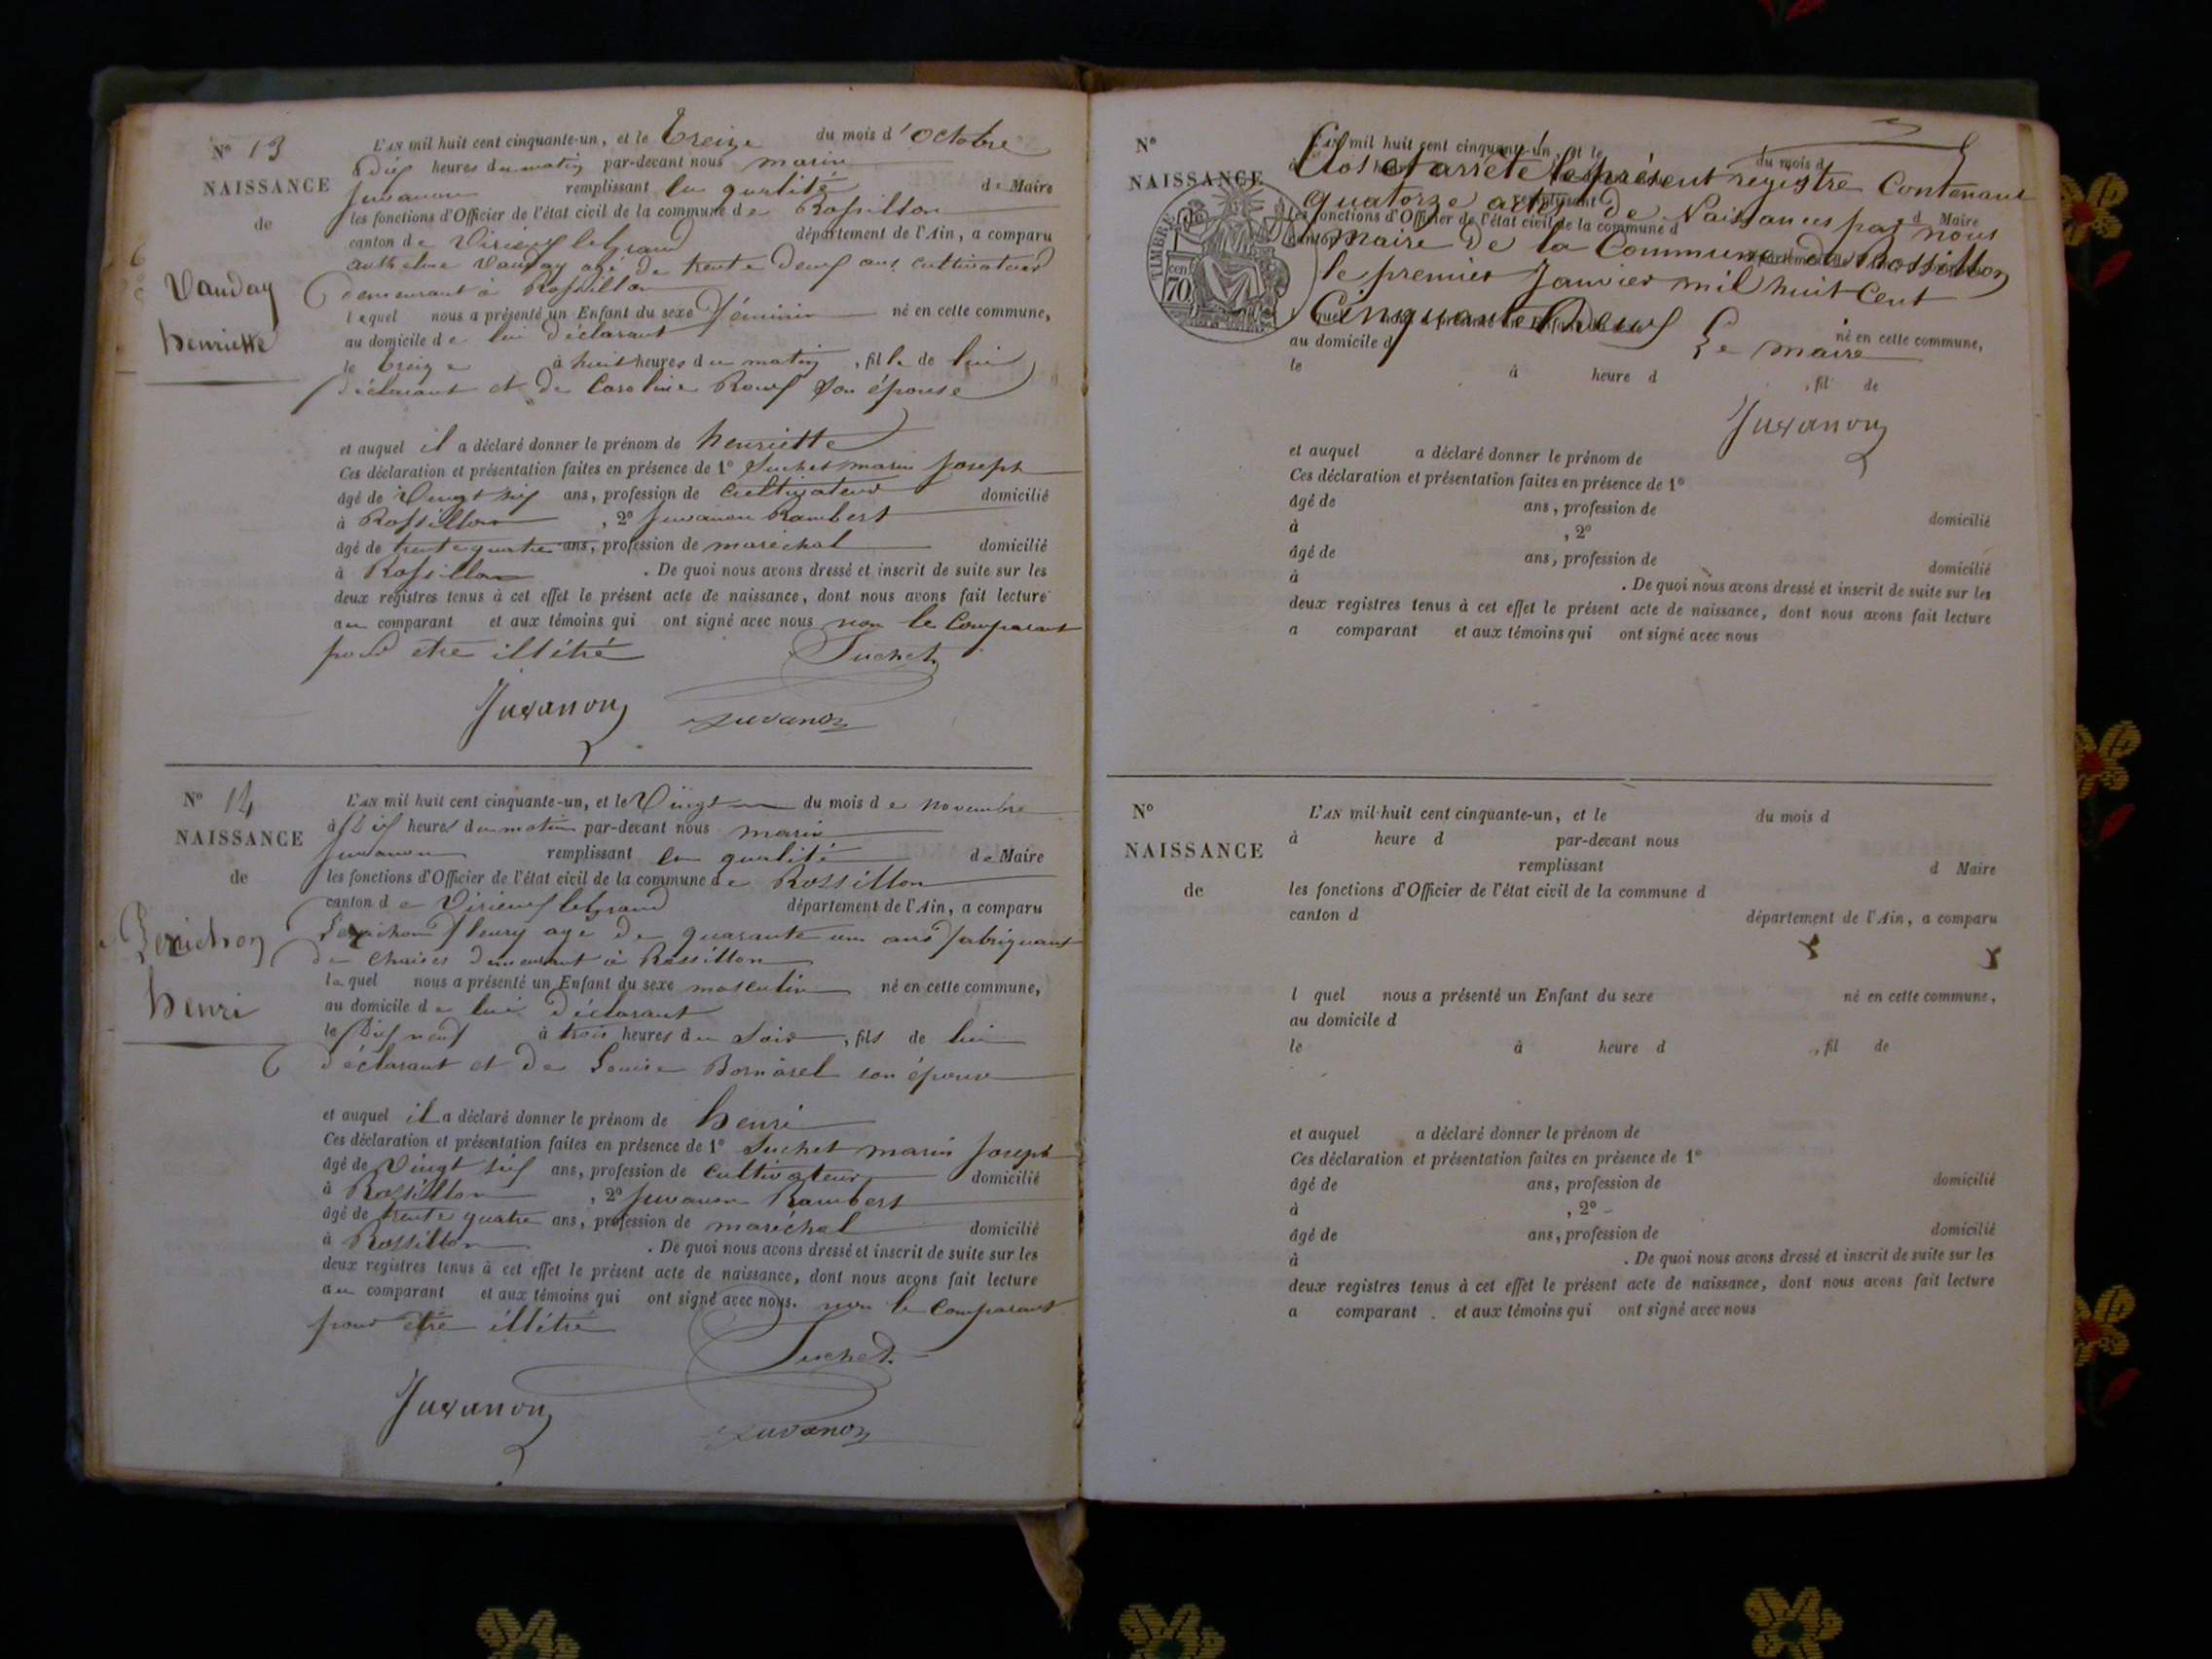 N° 13
NAISSANCE
de
Vauday
henriette
L'AN mil huit cent cinquante-un, et le Treize du mois d'Octobre
à Dix heures du matin par-devant nous marin
Juvanon remplissant en qualité de Maire
les fonctions d'Officier de l'état civil de la commune de Rossillon
canton de Virieux legrand département de l'Ain, a comparu
anthelme Vauday agé de trente deux ans cultivateur
demeurant à Rossillon
lequel nous a présenté un Enfant du sexe féminin né en cette commune,
au domicile de lui déclarant
le treize à huit heures du matin, fille de lui
déclarant et de Caroline Roux son épouse
et auquel il a déclaré donner le prénom de henriette
Ces déclaration et présentation faites en présence de 1° Suchet marin Joseph
âgé de Vingt six ans, profession de Cultivateur domicilié
à Rossillon, 2° Juvanon Rambert
âgé de trente quatre ans, profession de maréchal domicilié
à Rossillon. De quoi nous avons dressé et inscrit de suite sur les
deux registres tenus à cet effet le présent acte de naissance, dont nous avons fait lecture
au comparant et aux témoins qui ont signé avec nous non le Comparant
pour etre illétré
Suchet
Juvanon Juvanon
N° 14
NAISSANCE
de
henri
L'AN mil huit cent cinquante-un, et le Vingt du mois de novembre
à Dix heures du matin par-devant nous marin
Juvanon remplissant en qualité de Maire
les fonctions d'Officier de l'état civil de la commune de Rossillon
canton de Virieux legrand département de l'Ain, a comparu
fleury agé de quarante un ans fabriquant
de chaises demeurant à Rossillon
lequel nous a présenté un Enfant du sexe masculin né en cette commune,
au domicile de lui déclarant
le Dix neuf à trois heures du Soir, fils de lui
déclarant et de Louise Bornarel son épouse
et auquel il a déclaré donner le prénom de henri
Ces déclaration et présentation faites en présence de 1° Suchet marin Joseph
âgé de Vingt six ans, profession de Cultivateur domicilié
à Rossillon, 2° Juvanon Rambert
âgé de trente quatre ans, profession de maréchal domicilié
à Rossillon. De quoi nous avons dressé et inscrit de suite sur les
deux registres tenus à cet effet le présent acte de naissance, dont nous avons fait lecture
au comparant et aux témoins qui ont signé avec nous. non le Comparant
pour etre illétré
Suchet
Juvanon Juvanon
N°
NAISSANCE
TIMBRE
70
L'AN mil huit cent cinquante-un, et le du mois d
Clos et arrêté le présent registre Contenant
quatorze actes de Naissances par nous
d Maire
les fonctions d'Officier de l'état civil de la commune d
maire de la Commune de Rossillon
le premier Janvier mil huit Cent
Cinquante Deux
Le maire
né en cette commune,
au domicile d
le à heure d , fil de
Juvanon
et auquel a déclaré donner le prénom de
Ces déclaration et présentation faites en présence de 1°
âgé de ans, profession de domicilié
à , 2°
âgé de ans, profession de domicilié
à . De quoi nous avons dressé et inscrit de suite sur les
deux registres tenus à cet effet le présent acte de naissance, dont nous avons fait lecture
a comparant et aux témoins qui ont signé avec nous
N°
NAISSANCE
de
L'AN mil huit cent cinquante-un, et le du mois d
à heure d par-devant nous
remplissant d Maire
les fonctions d'Officier de l'état civil de la commune d
canton d département de l'Ain, a comparu
l quel nous a présenté un Enfant du sexe né en cette commune,
au domicile d
le à heure d , fil de
et auquel a déclaré donner le prénom de
Ces déclaration et présentation faites en présence de 1°
âgé de ans, profession de domicilié
à , 2°
âgé de ans, profession de domicilié
à . De quoi nous avons dressé et inscrit de suite sur les
deux registres tenus à cet effet le présent acte de naissance, dont nous avons fait lecture
a comparant et aux témoins qui ont signé avec nous